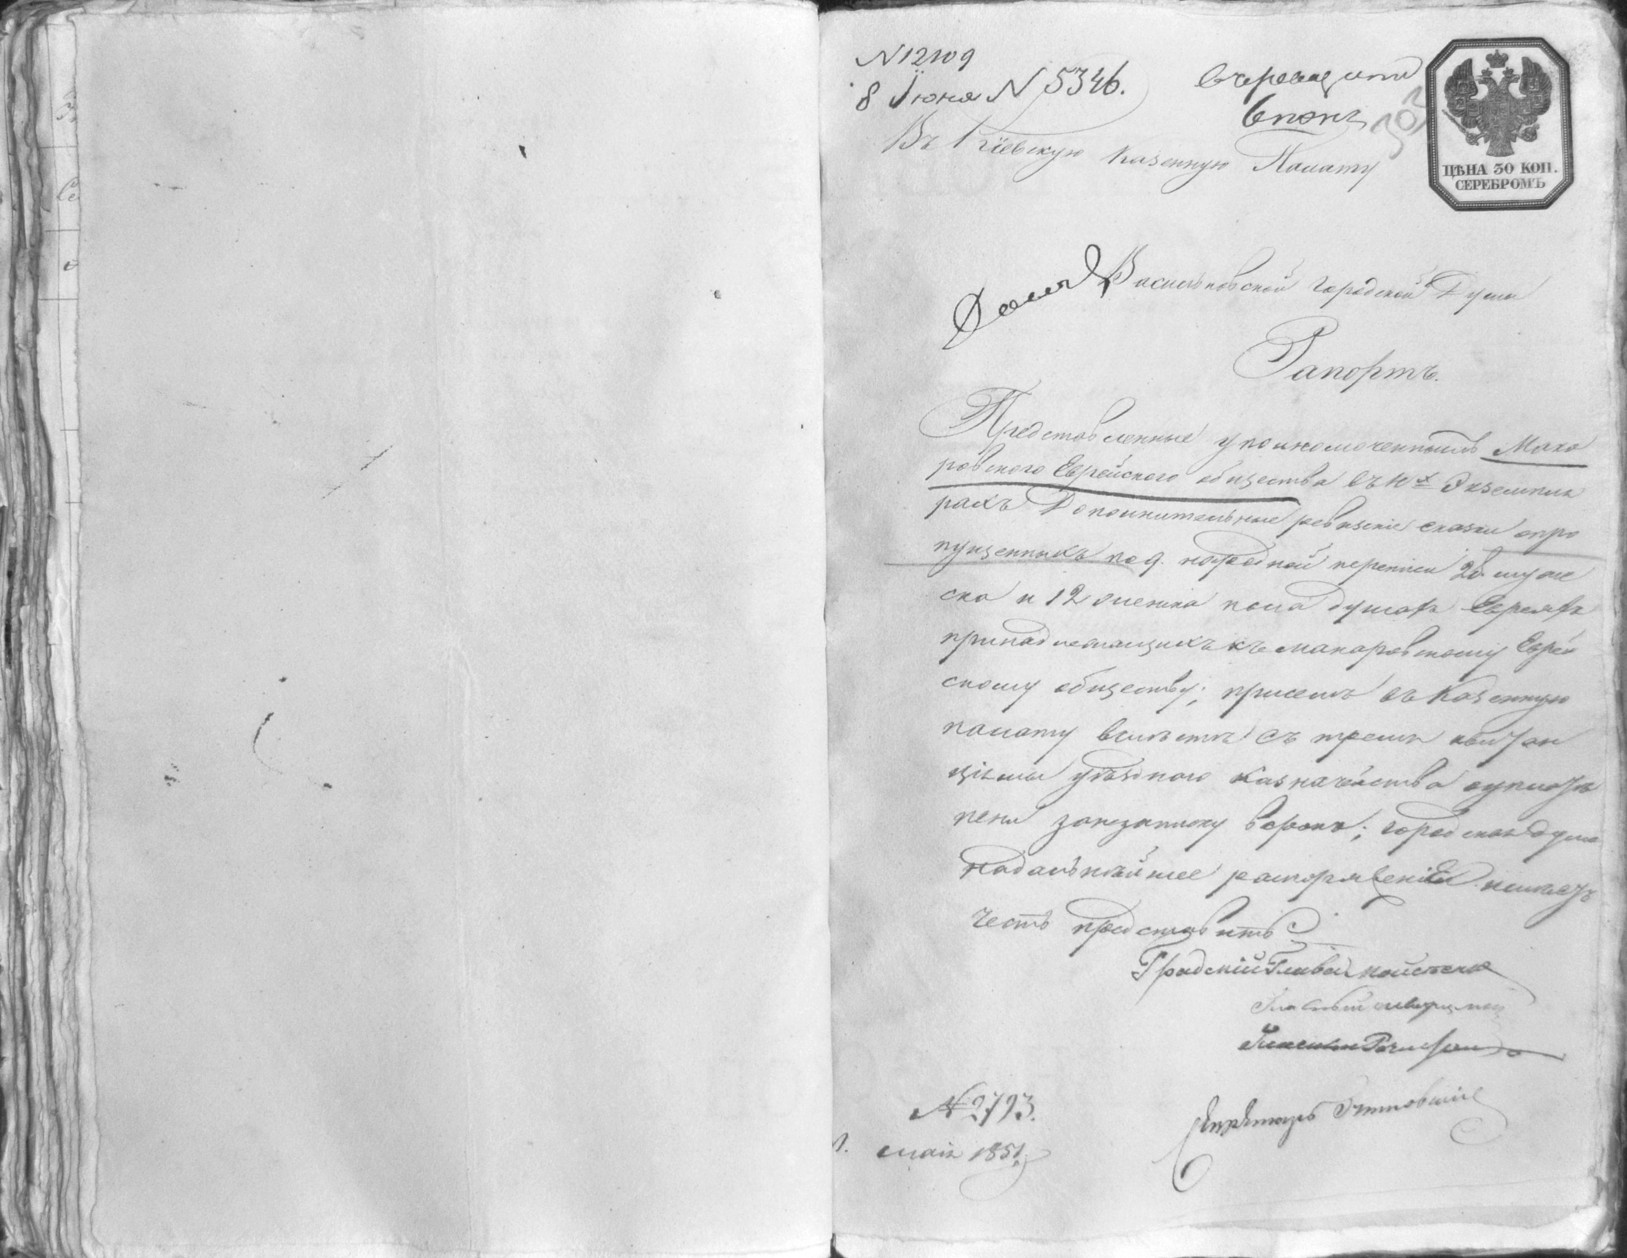 N 12109
8 Іюня N 5346.
Въ Кіевскую Казенную Палату
ЦѢНА 30 КОП.
СЕРЕБРОМЪ
Васильковской городской Думы
Рапортъ.
Представленные уполномоченнымъ Мака
ровского Еврейского общества въ 4х Экземпля
рахъ Дополнительные ревизскіе сказки опро
пущенныхъ по 9. народной переписи 28 муже
ска и 12 женска пола душахъ Евреяхъ
принадлежащихъ къ макаровскому Еврей
скому общество; присемъ въ Казенную
палату вместе съ тремя квитан
ціями уѣзднаго Казначейства
пени ; городская дума
надальнѣйшее распоряженіе имѣетъ
честь представить
Градскій Глава
Гласный
Гласный
Секретарь
N 2793.
маія 1851